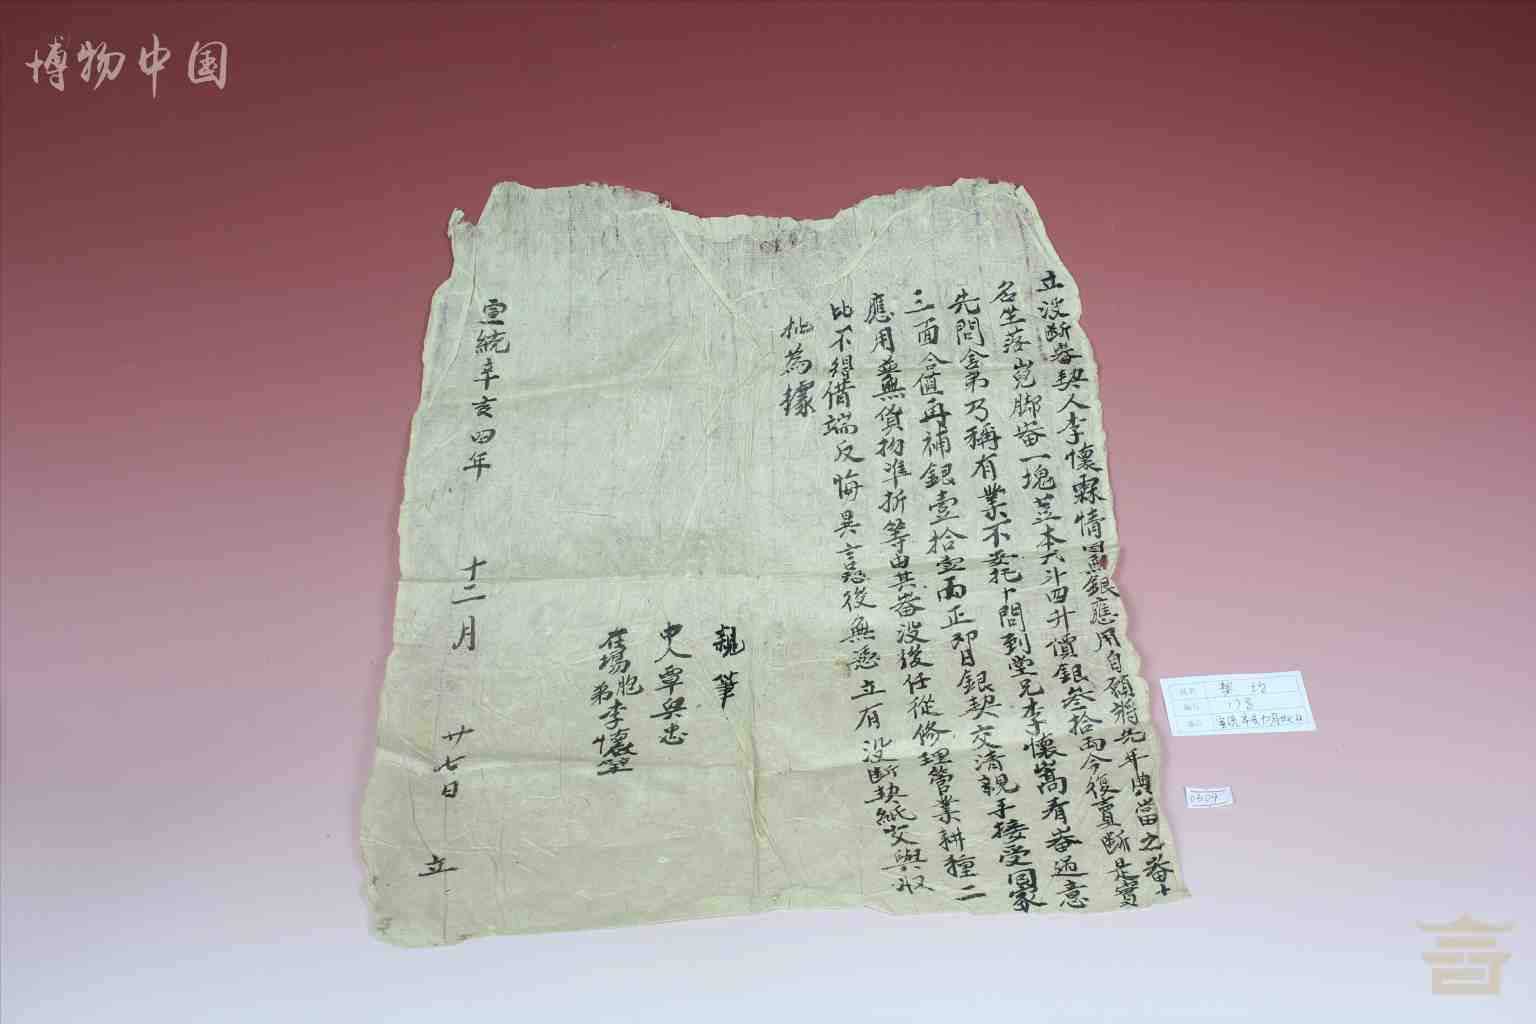 博物中国
立没断畬契人李懷霖情因缺銀應用自願將先年典當之畬土
名坐落嵬脚畬一塊荳本六斗四升價銀叁拾両今復賣斷是實
先問舍弟乃稱有業不要托中問到堂兄李懷嵩有畬適意
三面合值再補銀壹拾壹両正即日銀契交清親手接受回家
應用並無貨物准折等由其畬没後任從修理營業耕種二
比不得借端反悔異言恐後無憑立有没断契紙交與收
批為據
親筆
中人覃與忠
在場胞弟李懷
宣統辛亥四年 十二月 廿七日 立
契约
0304